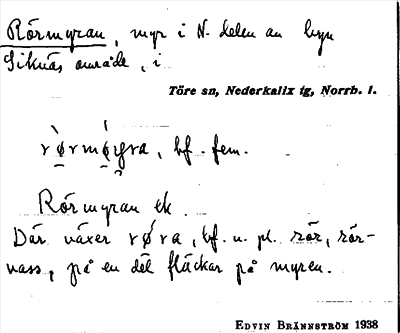 Rörmyran, myr i N. delen av byn
Siknäs område, i
Töre sn, Nederkalix tg, Norrb. l.
bf. fem.
Rörmyran ek.
Där växer røra, bf. n. pl. rör, rör-
vass, på en del fläckar på myren.
EDVIN BRÄNNSTRÖM 1938